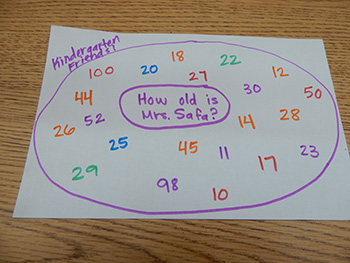 Kindergarten
Friends!
18
22
100
20
27
12
44
30
50
How old is
Mrs. Safa?
52
26
14
28
25
45
11
23
17
29
98
10